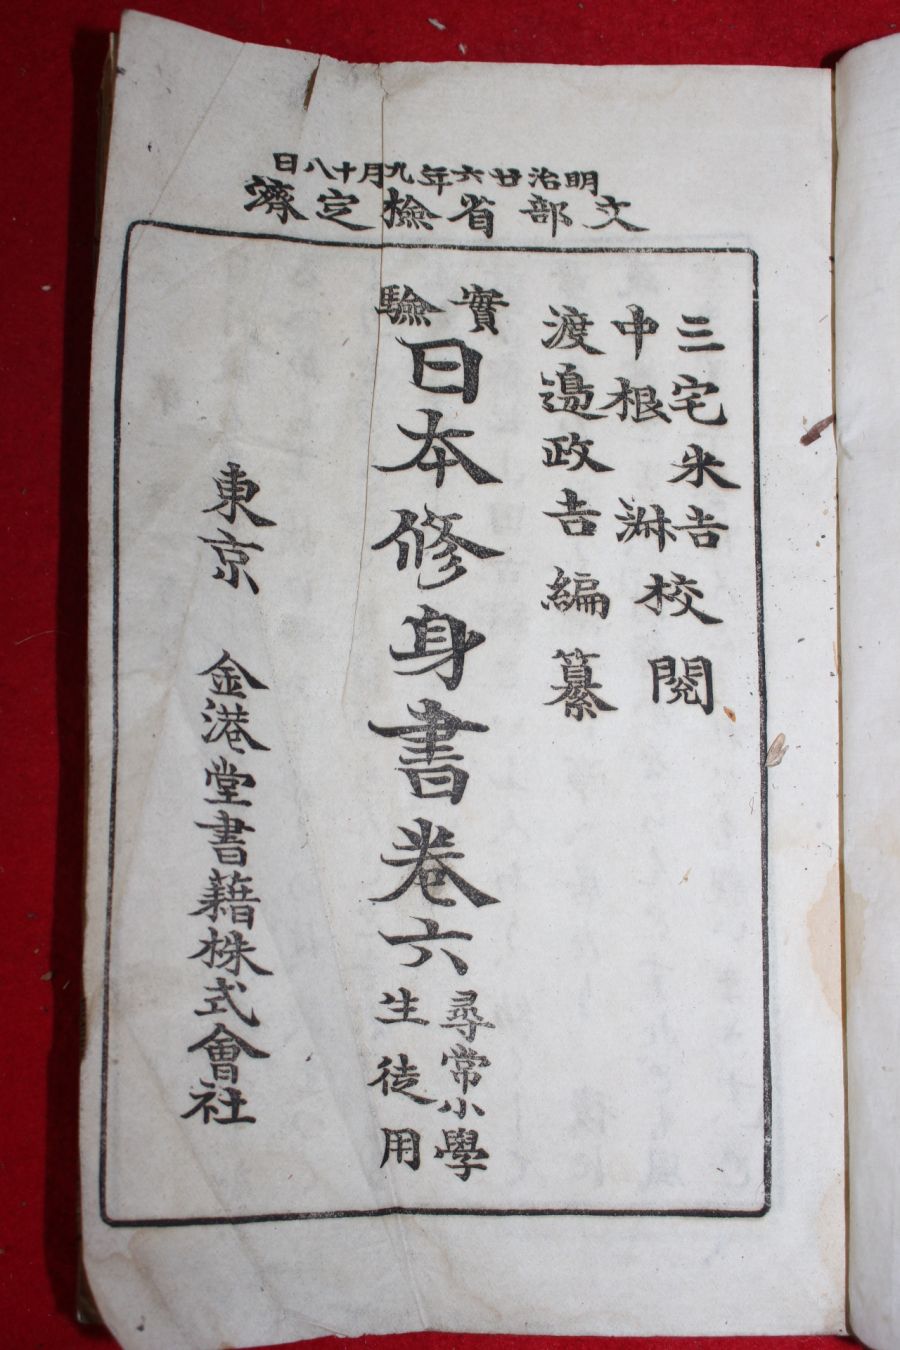 明治廿六年九月十八日
文部省檢定濟
三宅米吉
中根淑
校閲
渡邊政吉編纂
實驗
日本修身書卷六
尋常小學
生徒用
東京 金港堂書藉株式會社